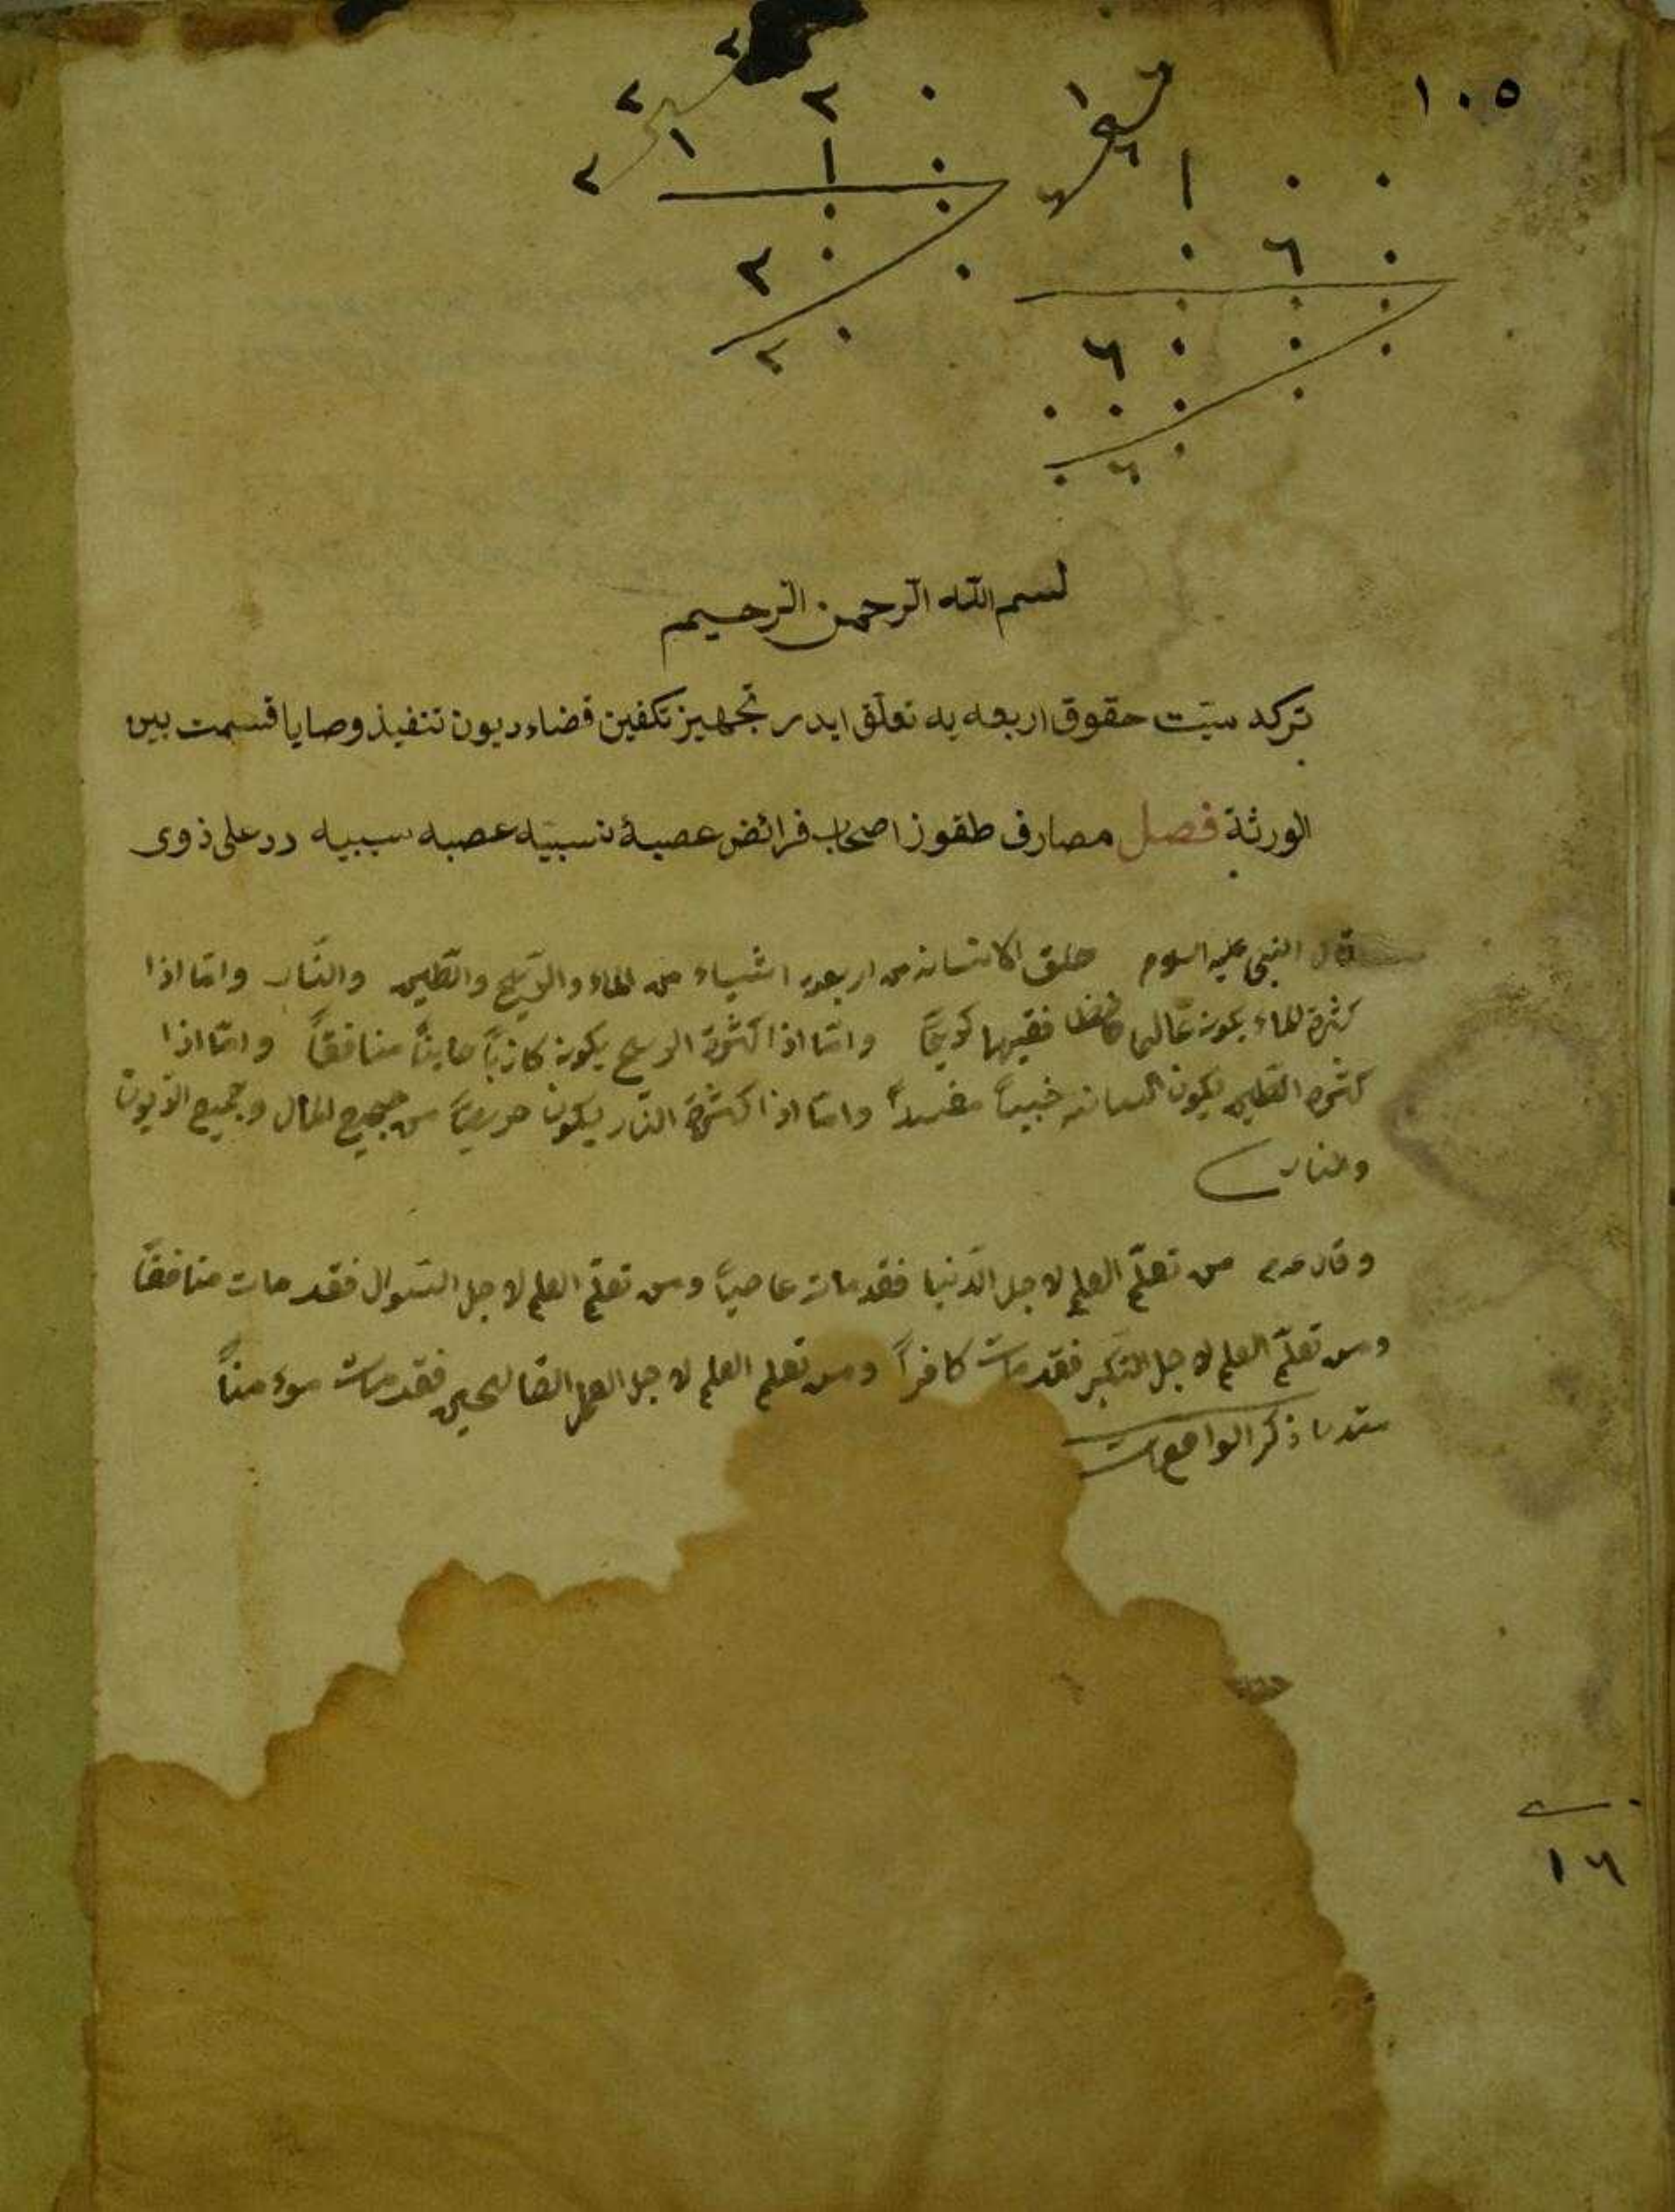 ١٠٥
٢ ٠
١ ٠
١ ٠ ٠
٠ ٦ ٠
بسم الله الرحمن الرحيم
تركه ميّت حقوق اربعه يه تعلّق ايدر تجهيز تكفين قضاء ديون تنفيذ وصايا قسمت بين
الورثة فصل مصارف طقوز اصحاب فرائض عصبۀ نسبيّه عصبه سببيه رد على ذوى
قال النبى عليه السلام خلق الانسان من اربعة اشياء من الماء والريح والطين والنّار وامّا اذا
كثرة الماء يكون عالما حافظا فقيها كريمًا وامّا اذا كثرة الريح يكون كاذبًا خاينًا منافقًا وامّا اذا
كثرة الطين يكون انسان خبيثًا مفسدًا وامّا اذا كثرة النّار يكون حريصًا من جميع المال وجميع
وقال من تعلّم العلم لاجل الدّنيا فقد مات عاصيًا ومن تعلّم العلم لاجل السّوال فقد مات منافقًا
ومن تعلّم العلم لاجل التكبر فقد مات كافرًا ومن تعلم العلم لاجل العمل الصّالحين فقد مات موءمنًا
ذكر الواقعات
١٦